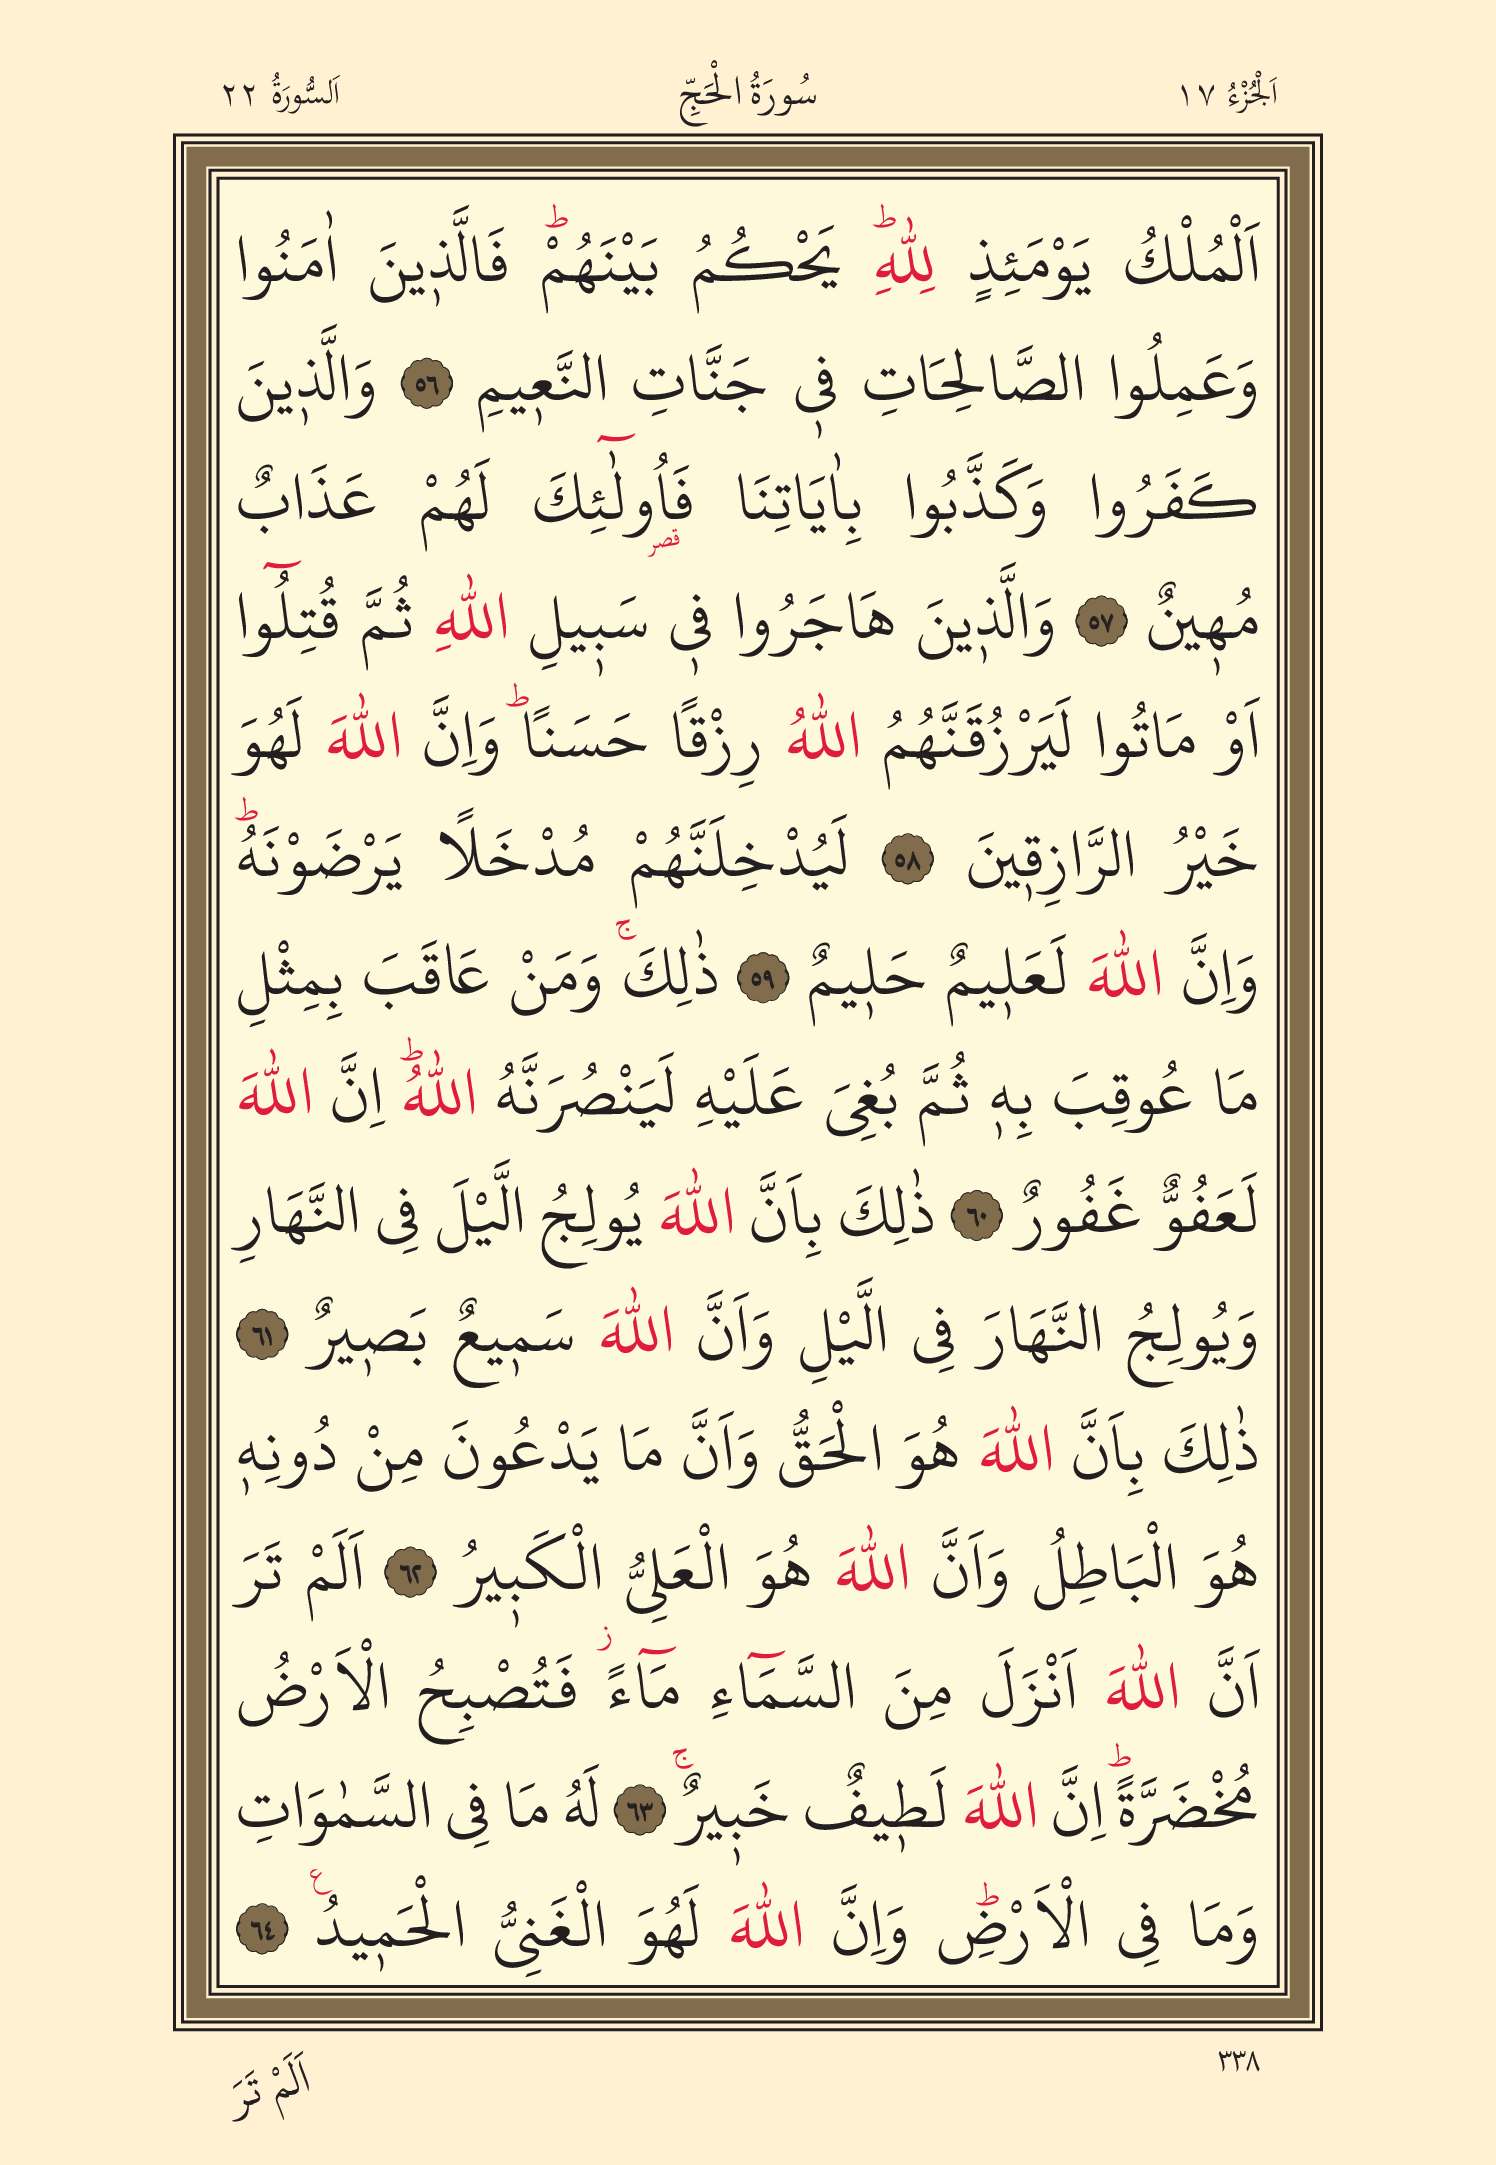 اَلْجُزْءُ ١٧ سُورَةُ الْحَجِّ اَلسُّورَةُ ٢٢
اَلْمُلْكُ يَوْمَئِذٍ لِلّٰهِۜ يَحْكُمُ بَيْنَهُمْۜ فَالَّذ۪ينَ اٰمَنُوا
وَعَمِلُوا الصَّالِحَاتِ ف۪ي جَنَّاتِ النَّع۪يمِ ٥٦ وَالَّذ۪ينَ
كَفَرُوا وَكَذَّبُوا بِاٰيَاتِنَا فَاُو۬لٰٓئِكَ لَهُمْ عَذَابٌ
قصر
مُه۪ينٌ ٥٧ وَالَّذ۪ينَ هَاجَرُوا ف۪ي سَب۪يلِ اللّٰهِ ثُمَّ قُتِلُٓوا
اَوْ مَاتُوا لَيَرْزُقَنَّهُمُ اللّٰهُ رِزْقًا حَسَنًاۜ وَاِنَّ اللّٰهَ لَهُوَ
خَيْرُ الرَّازِق۪ينَ ٥٨ لَيُدْخِلَنَّهُمْ مُدْخَلًا يَرْضَوْنَهُۜ
وَاِنَّ اللّٰهَ لَعَل۪يمٌ حَل۪يمٌ ٥٩ ذٰلِكَۚ وَمَنْ عَاقَبَ بِمِثْلِ
مَا عُوقِبَ بِه۪ ثُمَّ بُغِيَ عَلَيْهِ لَيَنْصُرَنَّهُ اللّٰهُۜ اِنَّ اللّٰهَ
لَعَفُوٌّ غَفُورٌ ٦٠ ذٰلِكَ بِاَنَّ اللّٰهَ يُولِجُ الَّيْلَ فِي النَّهَارِ
وَيُولِجُ النَّهَارَ فِي الَّيْلِ وَاَنَّ اللّٰهَ سَم۪يعٌ بَص۪يرٌ ٦١
ذٰلِكَ بِاَنَّ اللّٰهَ هُوَ الْحَقُّ وَاَنَّ مَا يَدْعُونَ مِنْ دُونِه۪
هُوَ الْبَاطِلُ وَاَنَّ اللّٰهَ هُوَ الْعَلِيُّ الْكَب۪يرُ ٦٢ اَلَمْ تَرَ
اَنَّ اللّٰهَ اَنْزَلَ مِنَ السَّمَٓاءِ مَٓاءًۘ فَتُصْبِحُ الْاَرْضُ
مُخْضَرَّةًۜ اِنَّ اللّٰهَ لَط۪يفٌ خَب۪يرٌۚ ٦٣ لَهُ مَا فِي السَّمٰوَاتِ
وَمَا فِي الْاَرْضِۜ وَاِنَّ اللّٰهَ لَهُوَ الْغَنِيُّ الْحَم۪يدُ ع ٦٤
٣٣٨
اَلَمْ تَرَ